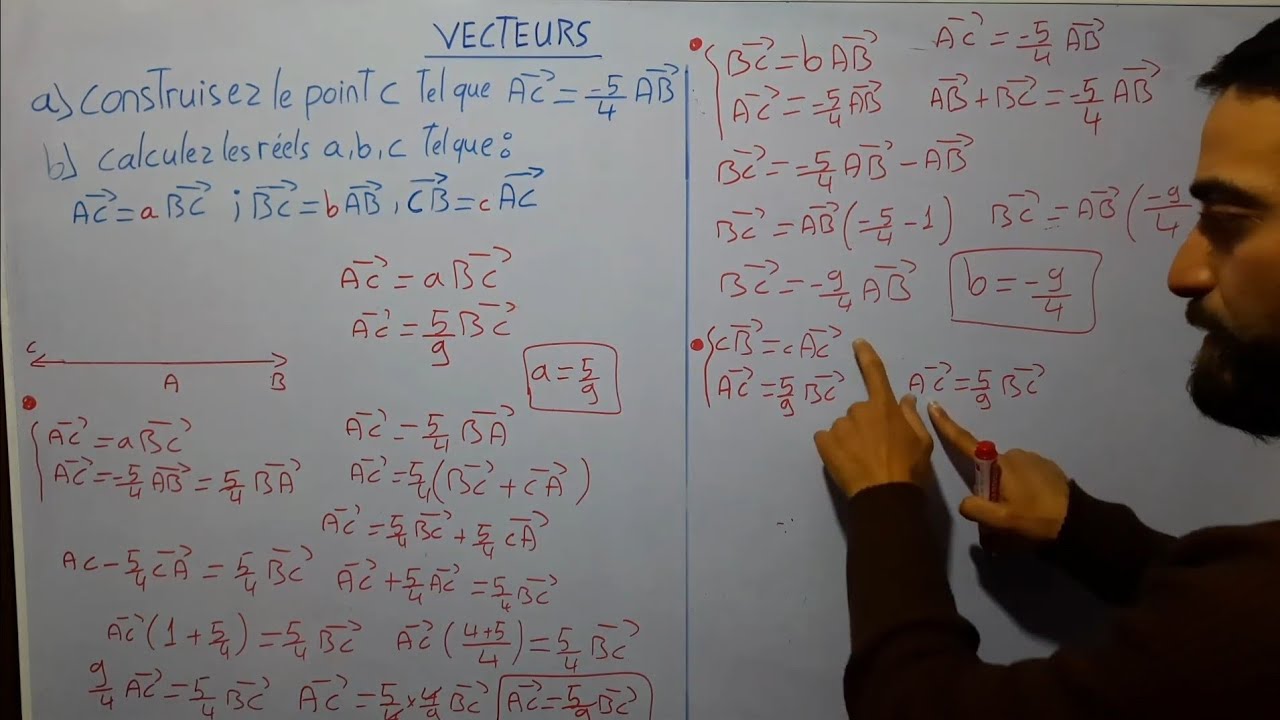 VECTEURS
a) construisez le point c Tel que AC⃗ = -5/4 AB⃗
b) calculez les réels a, b, c Tel que :
AC⃗ = a BC⃗ ; BC⃗ = b AB⃗ , CB⃗ = c AC⃗
AC⃗ = a BC⃗
AC⃗ = 5/9 BC⃗
a = 5/9
C A B
AC⃗ = a BC⃗
AC⃗ = -5/4 AB⃗ = 5/4 BA⃗
AC⃗ = 5/4 BA⃗
AC⃗ = 5/4 (BC⃗ + CA⃗)
AC⃗ = 5/4 BC⃗ + 5/4 CA⃗
AC - 5/4 CA⃗ = 5/4 BC⃗
AC⃗ + 5/4 AC⃗ = 5/4 BC⃗
AC⃗ (1 + 5/4) = 5/4 BC⃗
AC⃗ (4+5/4) = 5/4 BC⃗
9/4 AC⃗ = 5/4 BC⃗
AC⃗ = 5/4 × 4/9 BC⃗
AC⃗ = 5/9 BC⃗
BC⃗ = b AB⃗
AC⃗ = -5/4 AB⃗
AC⃗ = -5/4 AB⃗
AB⃗ + BC⃗ = -5/4 AB⃗
BC⃗ = -5/4 AB⃗ - AB⃗
BC⃗ = AB⃗ (-5/4 - 1)
BC⃗ = AB⃗ (-9/4
BC⃗ = -9/4 AB⃗
b = -9/4
CB⃗ = c AC⃗
AC⃗ = 5/9 BC⃗
AC⃗ = 5/9 BC⃗